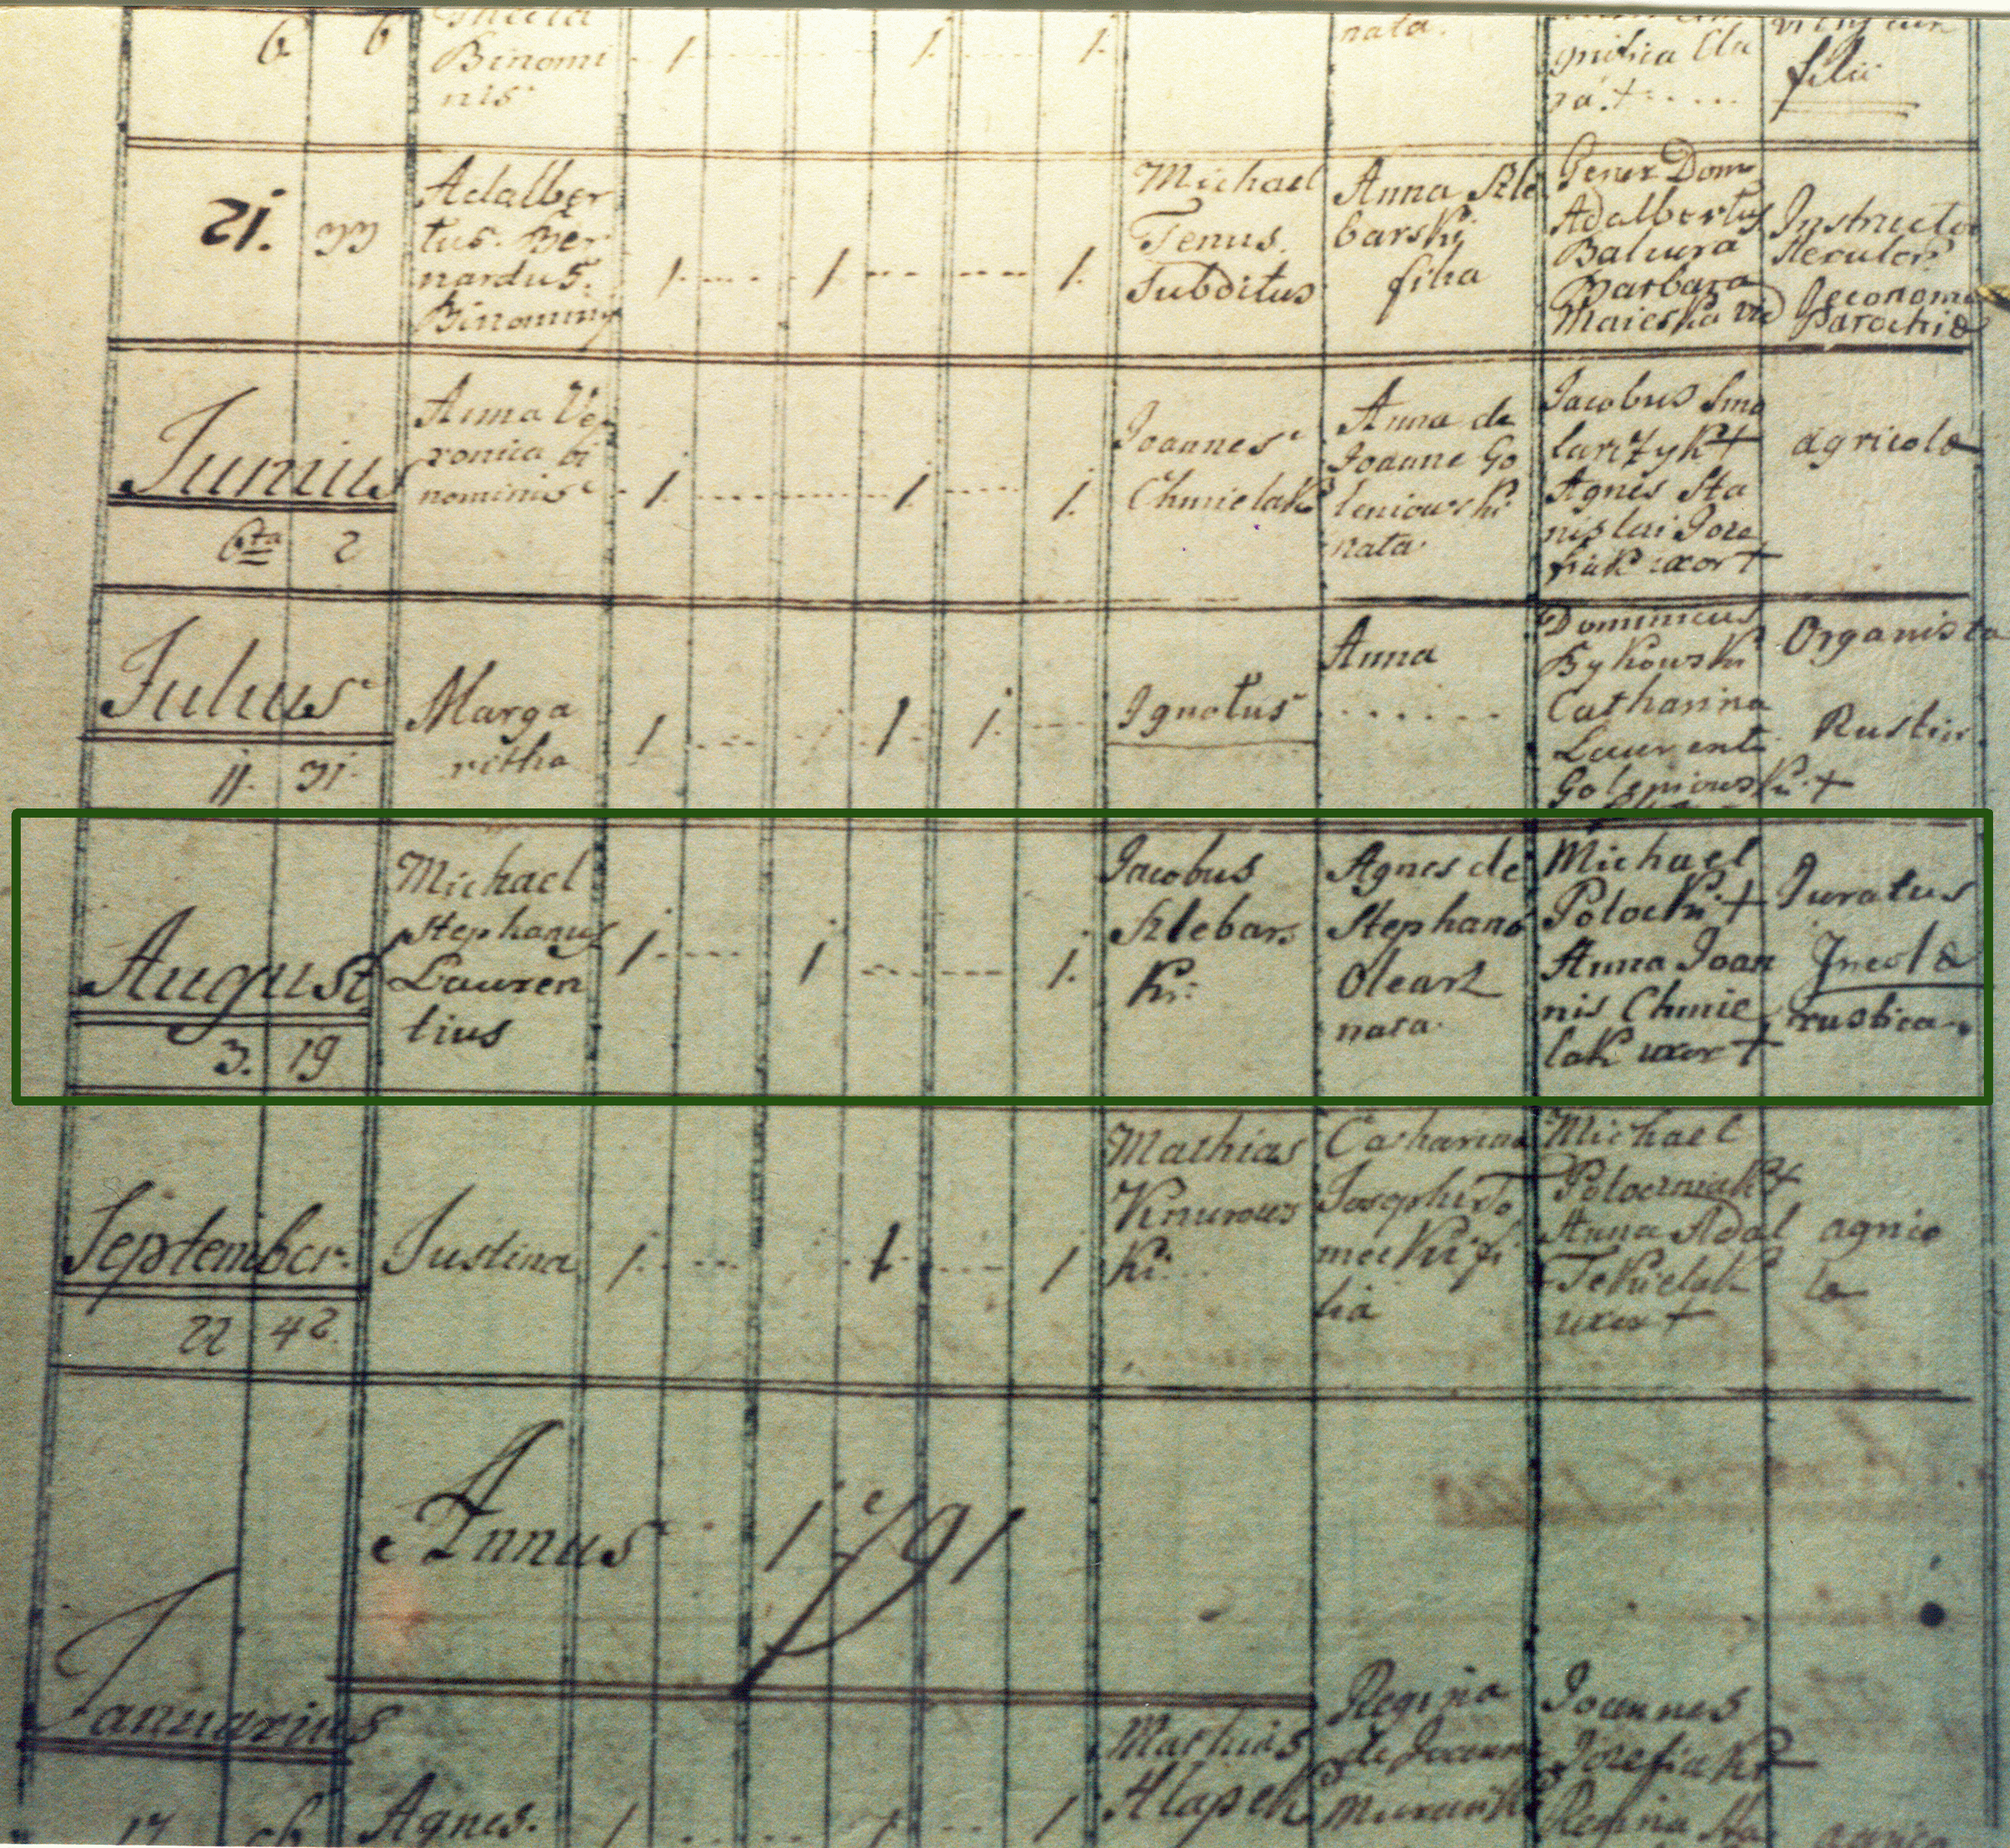 6 6
Binomi
nis
1 1 1.
nata.
filii
21. 33
Adalber
tus. Ber
nardus.
Binominis
1. 1 1.
Michael
Tenus.
Subditus
Anna Kle
barski
filia
Gener Dom
Adalbertus
Baluira
Barbara
Maieska
Instructor
Parochia
Junius
6ta 2
Anna Ve
ronica bi
nominis
1. 1. 1.
Joannes
Chmielak
Anna de
Joanne Go
leniowski
nata.
Jacobus Smo
larczyk +
Agnes Sta
nislai Joze
fiak uxor +
agricola
Julius
11. 31.
Marga
ritha
1 1 1.
Ignotus
Anna
Dominicus
Bykowski
Catharina
Laurenti
Goleniowski +
Organista
August
3. 19
Michael
Stephanus
Lauren
tius
1. 1 1.
Jacobus
Klebars
ki.
Agnes de
Stephano
Olearz
nata.
Michael
Potocki +
Anna Joan
nis Chmie
lak uxor +
Juratus
Incola
rustica
September.
22 42.
Justina
1. 1. 1
Mathias
Knurows
ki.
Catharina
Josephi To
mecki fi
lia
Michael
Potoczniak +
Anna Adal
Tekielak
uxor +
agrico
la
Annus 1791
Januarius
17
Agnes.
1 1 1
Mathias
Klapek
Regina
de Joann
Joannes
Jozefiak +
Regina Sta